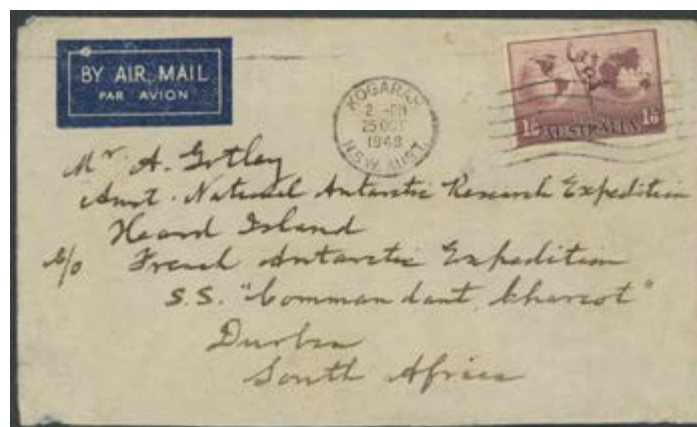 BY AIR MAIL
PAR AVION
KOGARAH
2 - PM
25 OCT
1948
N.S.W. AUST.
1/6 AUSTRALIA 1/6
Mr. A. Gotley
Aust. National Antarctic Research Expedition
Heard Island
c/o French Antarctic Expedition
S.S. "Commandant Charcot"
Durban
South Africa